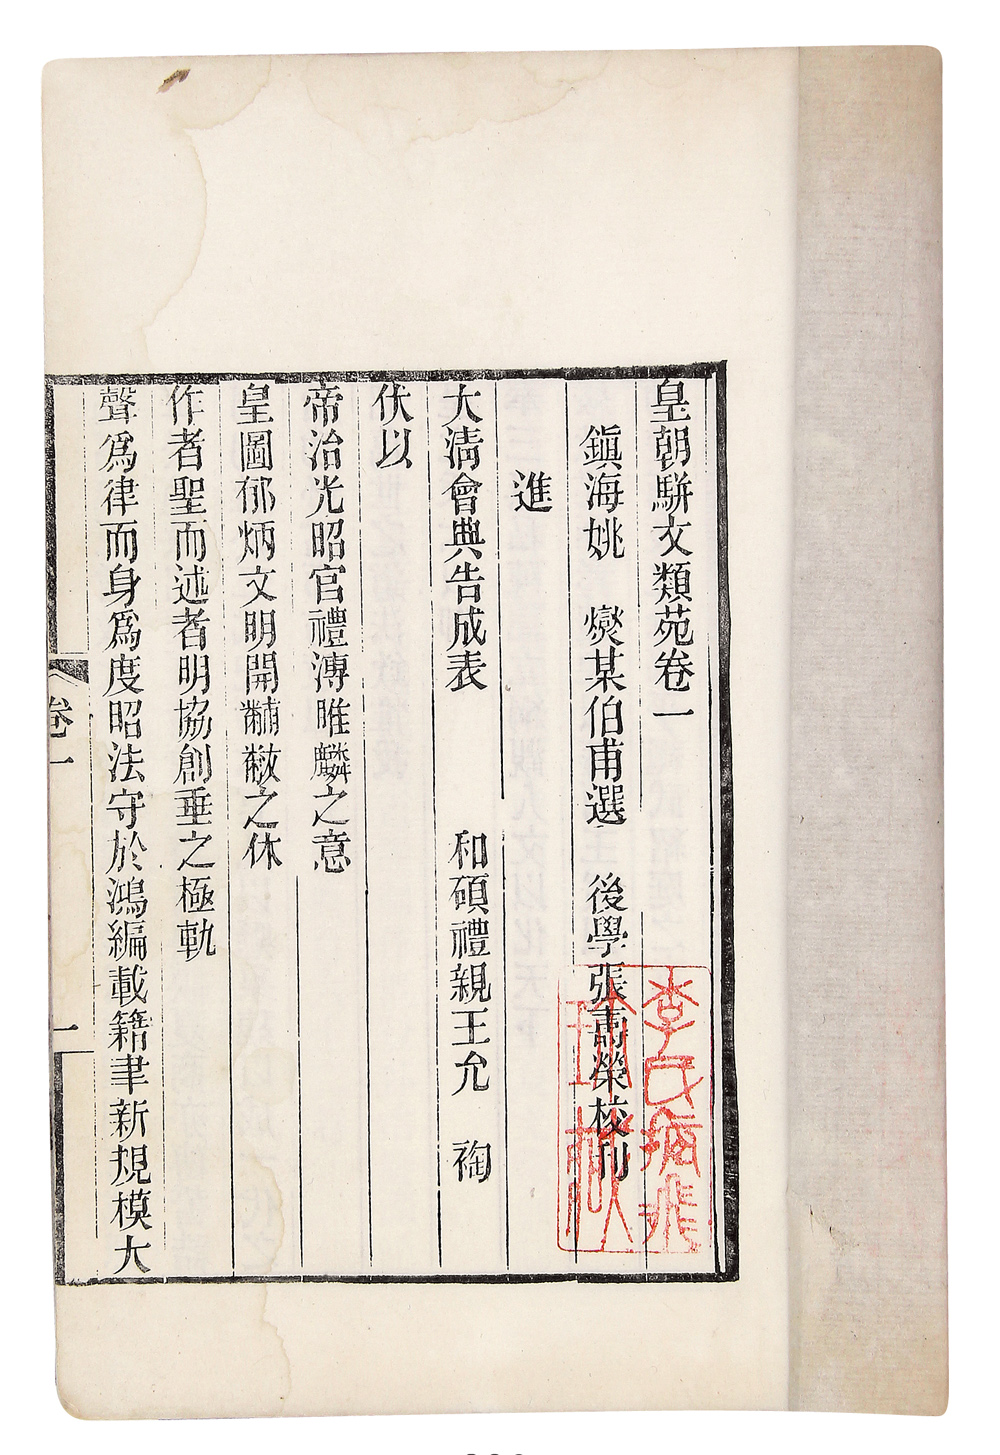 皇朝駢文類苑卷一
鎮海姚　燮某伯甫選　後學張壽榮校刊
進
大清會典告成表　和碩禮親王允　祹
伏以
帝治光昭官禮溥睢麟之意
皇圖郁炳文明開黼黻之休
作者聖而述者明協創垂之極軌
聲爲律而身爲度昭法守於鴻編載籍聿新規模大
卷一
一
李氏